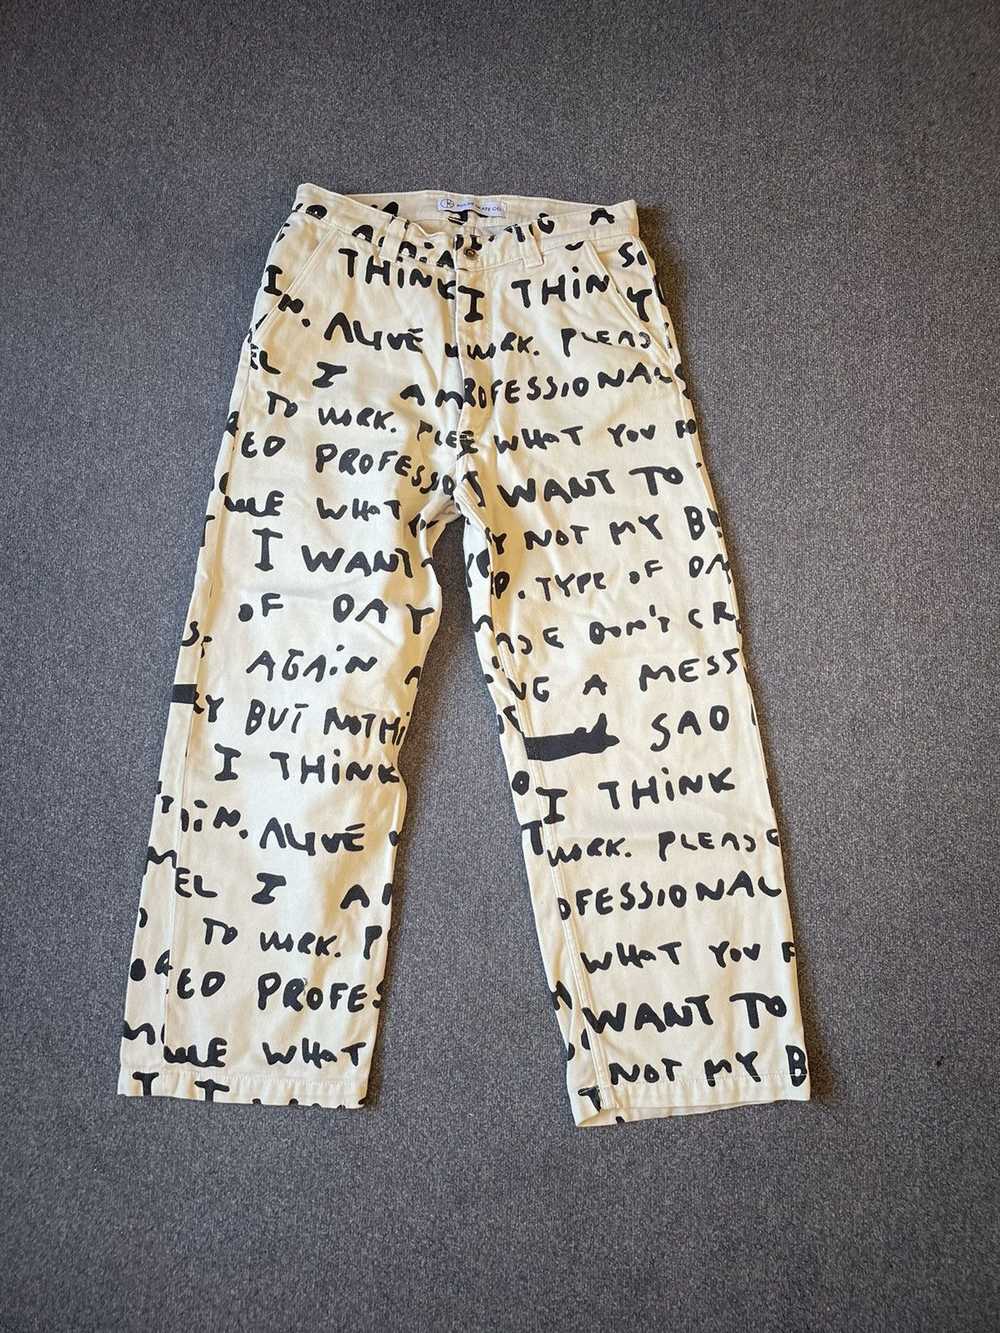 POLAR SKATE CO.
THINK I THIN
ALIVE WORK. PLEAS
EL I A PROFESSIONAL
TO WORK. PLEE WHAT YOU FO
ED PROFESSO WANT TO
ME WHAT NOT MY BU
I WANT TYPE OF DA
OF DAY DON'T CR
AGAIN NG A MESS
RY BUT NOTHI SAD
I THINK I THINK
HiN. ALIVE WORK. PLEASE
EL I A OFESSIONAL
TO WORK. P WHAT YOU F
ED PROFES WANT TO
ME WHAT NOT MY B